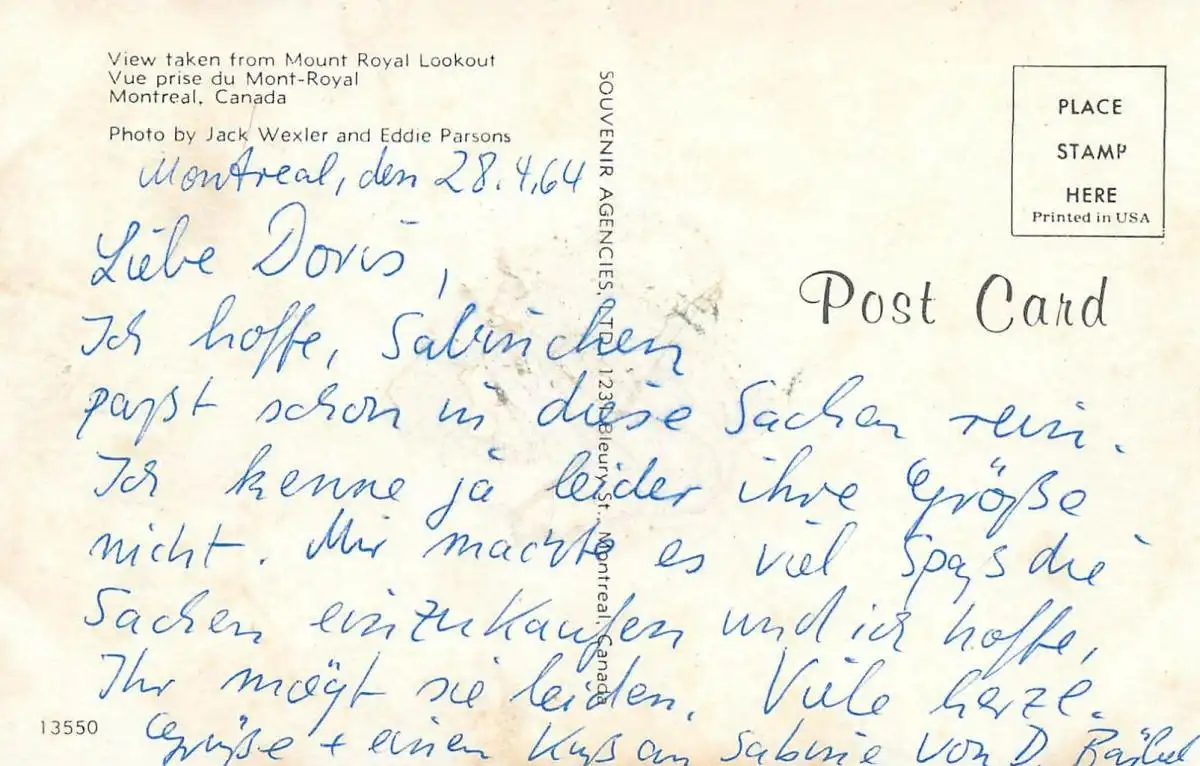 View taken from Mount Royal Lookout
Vue prise du Mont-Royal
Montreal, Canada
Photo by Jack Wexler and Eddie Parsons
SOUVENIR AGENCIES, LTD., 1239 Bleury St., Montreal, Canada
PLACE
STAMP
HERE
Printed in USA
Post Card
Montreal, den 28.4.64
Liebe Doris,
Ich hoffe, Sabinchen
paßt schon in diese Sachen rein.
Ich kenne ja leider ihre Größe
nicht. Mir machte es viel Spaß die
Sachen einzukaufen und ich hoffe,
Ihr mögt sie leiden. Viele herzl.
Grüße + einen Kuß an Sabine von D. Bärbel
13550